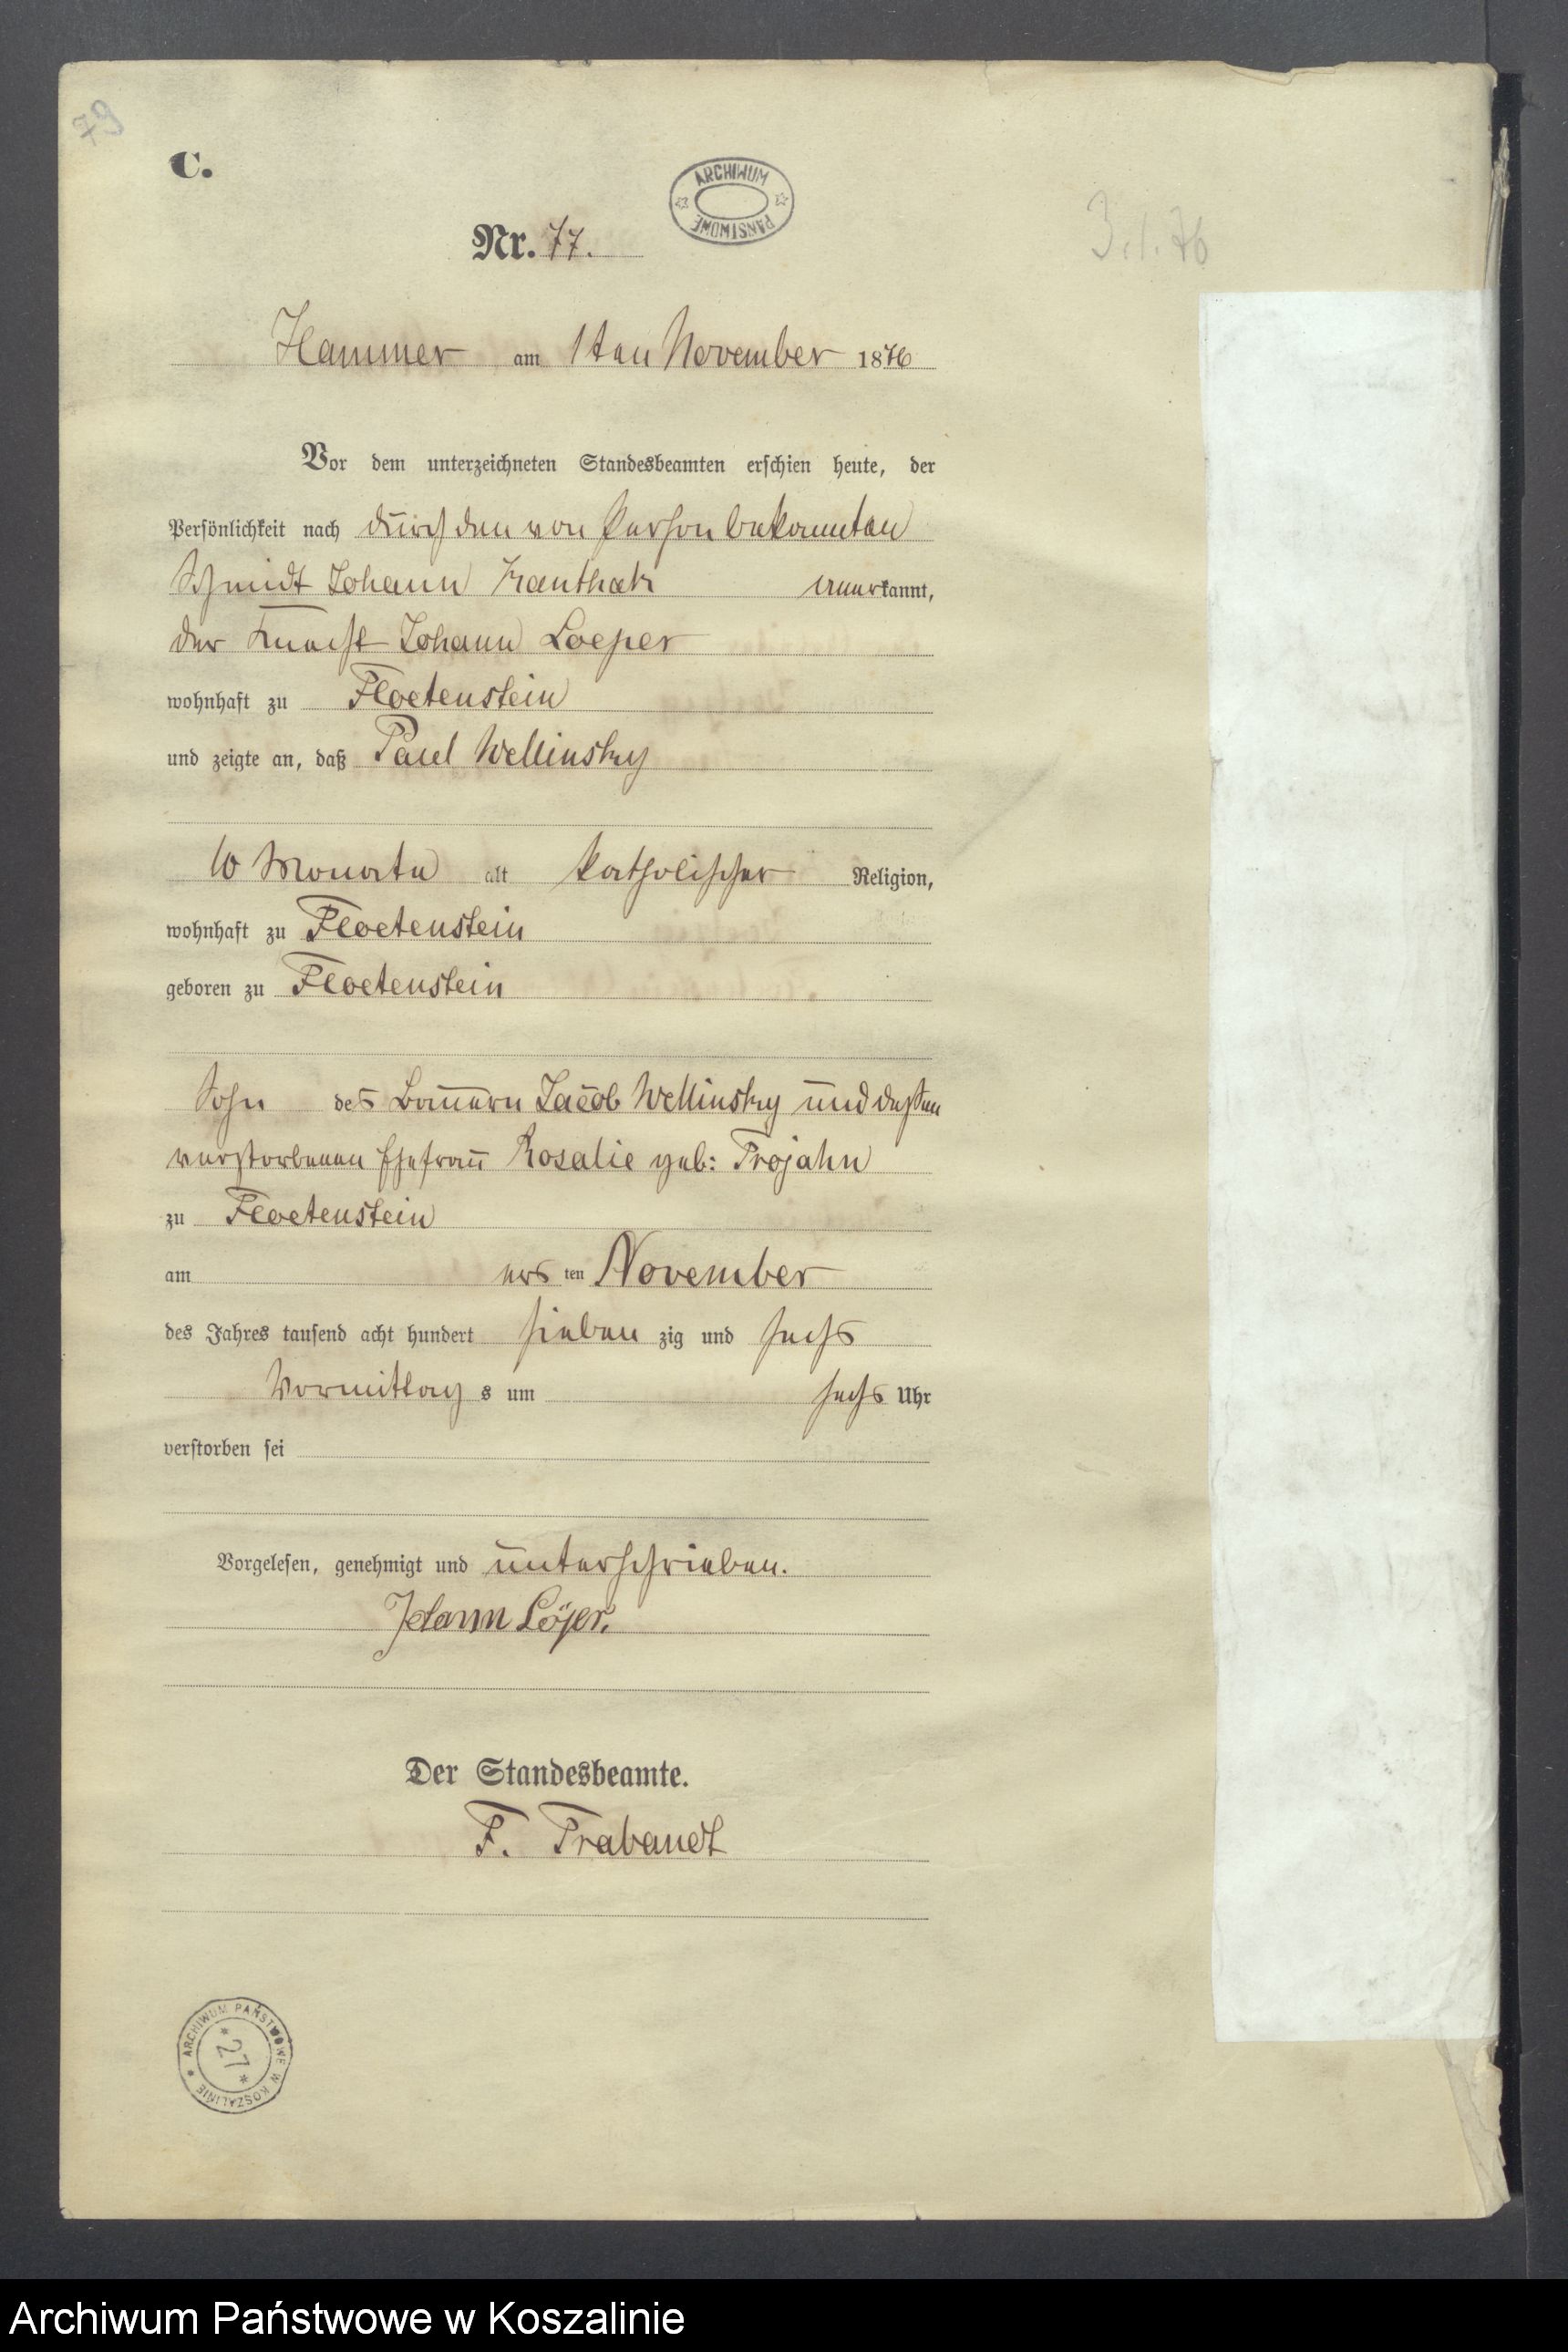 79
C.
ARCHIWUM PAŃSTWOWE
Nr. 77.
3.1.76
Hammer am 1ten November 1876
Vor dem unterzeichneten Standesbeamten erschien heute, der
Persönlichkeit nach durch den von Person bekannten
Schmidt Johann kannt,
der Knecht Johann Loeper
wohnhaft zu Floetenstein
und zeigte an, daß Paul Wellinsky
10 Monate alt katholischer Religion,
wohnhaft zu Floetenstein
geboren zu Floetenstein
Sohn des Bauern Jacob Wellinsky und dessen
verstorbenen Ehefrau Rosalie geb: Trojahn
zu Floetenstein
am ers ten November
des Jahres tausend acht hundert sieben zig und sechs
Vormittag s um sechs Uhr
verstorben sei
Vorgelesen, genehmigt und unterschrieben.
Johann Löper.
Der Standesbeamte.
F. Trabandt
ARCHIWUM PAŃSTWOWE W KOSZALINIE
27
Archiwum Państwowe w Koszalinie